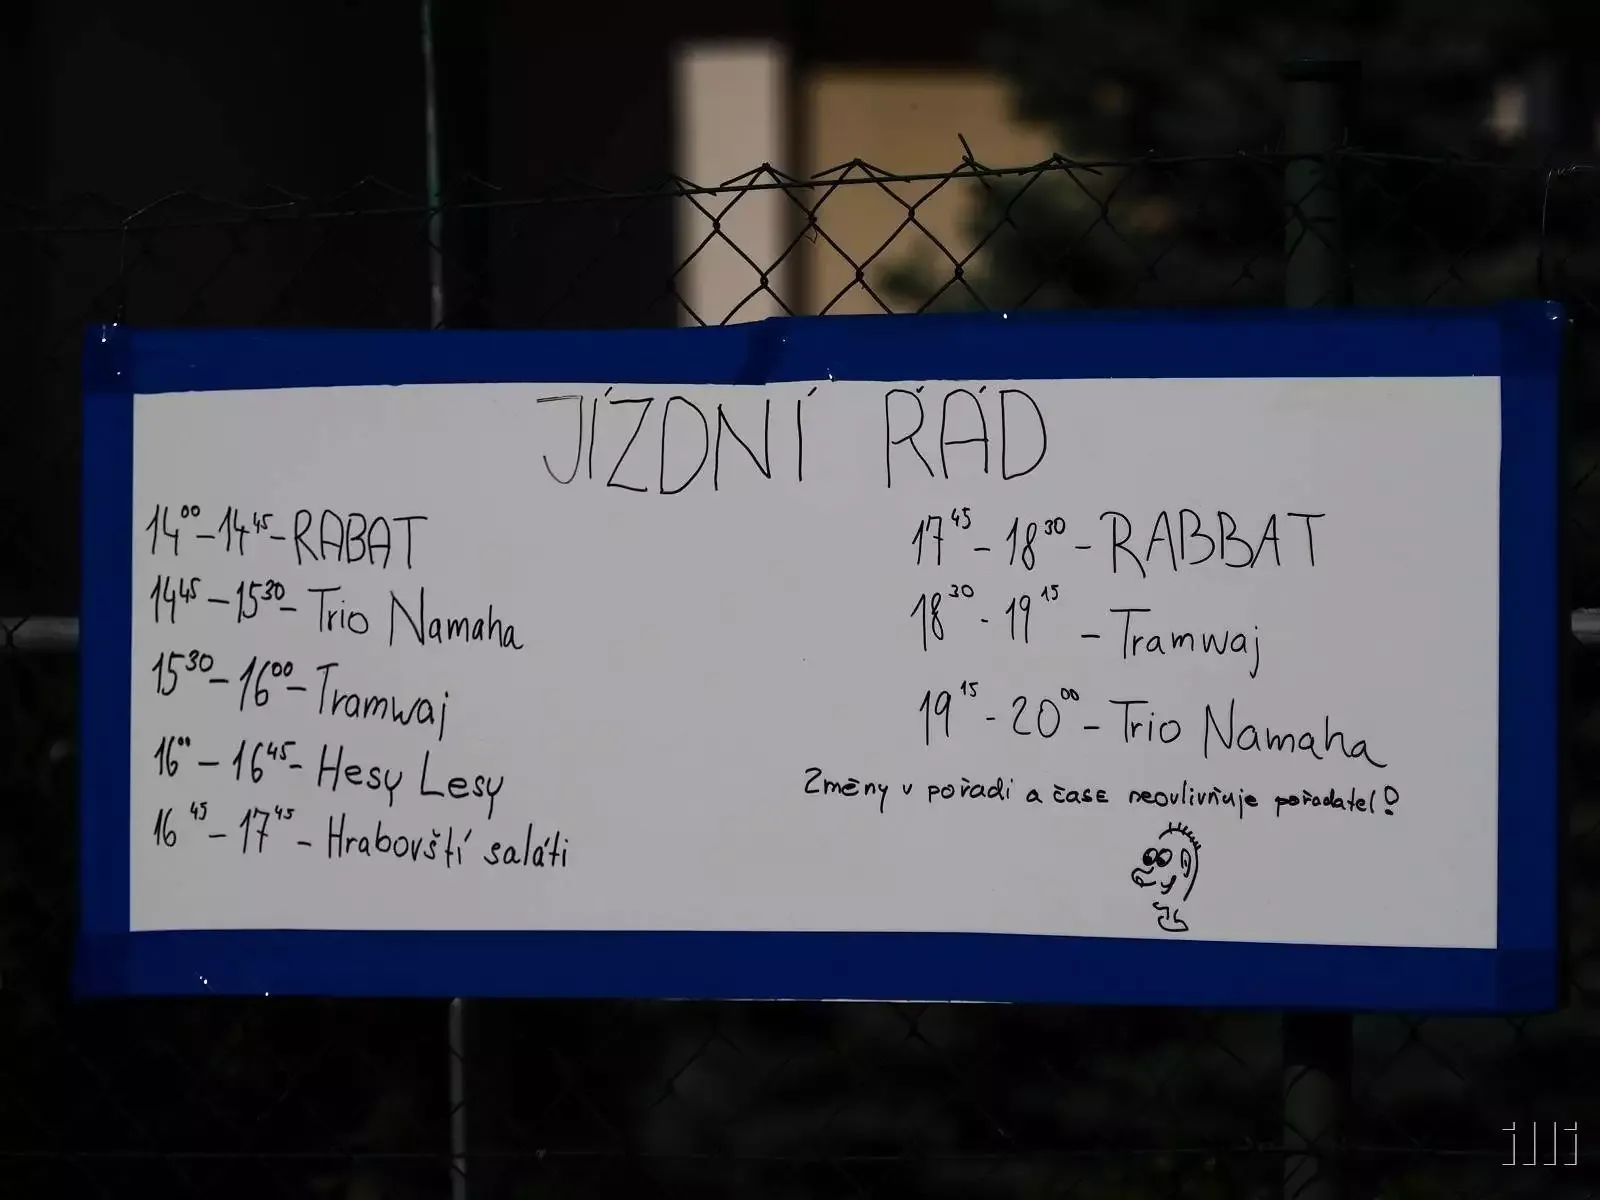 JÍZDNÍ ŘÁD
14⁰⁰-14⁴⁵-RABAT
14⁴⁵-15³⁰-Trio Namaha
15³⁰-16⁰⁰-Tramwaj
16⁰⁰-16⁴⁵-Hesy Lesy
16⁴⁵-17⁴⁵-Hrabovští saláti
17⁴⁵-18³⁰-RABBAT
18³⁰-19¹⁵-Tramwaj
19¹⁵-20⁰⁰-Trio Namaha
Změny v pořadí a čase neovlivňuje pořadatel!